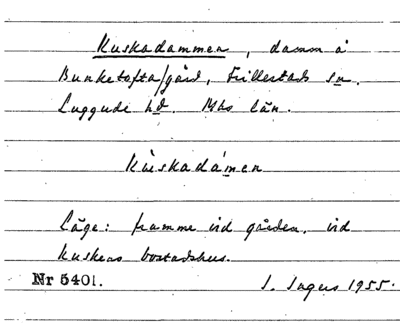 Kuskadammen, damm å
Bunketofta gård, Frillestads sn.
Luggude hd. Mhs län.
Kuskadámen
Läge: framme vid gården, vid
kuskens bostadshus.
Nr 5401.
S. Ingers 1955.